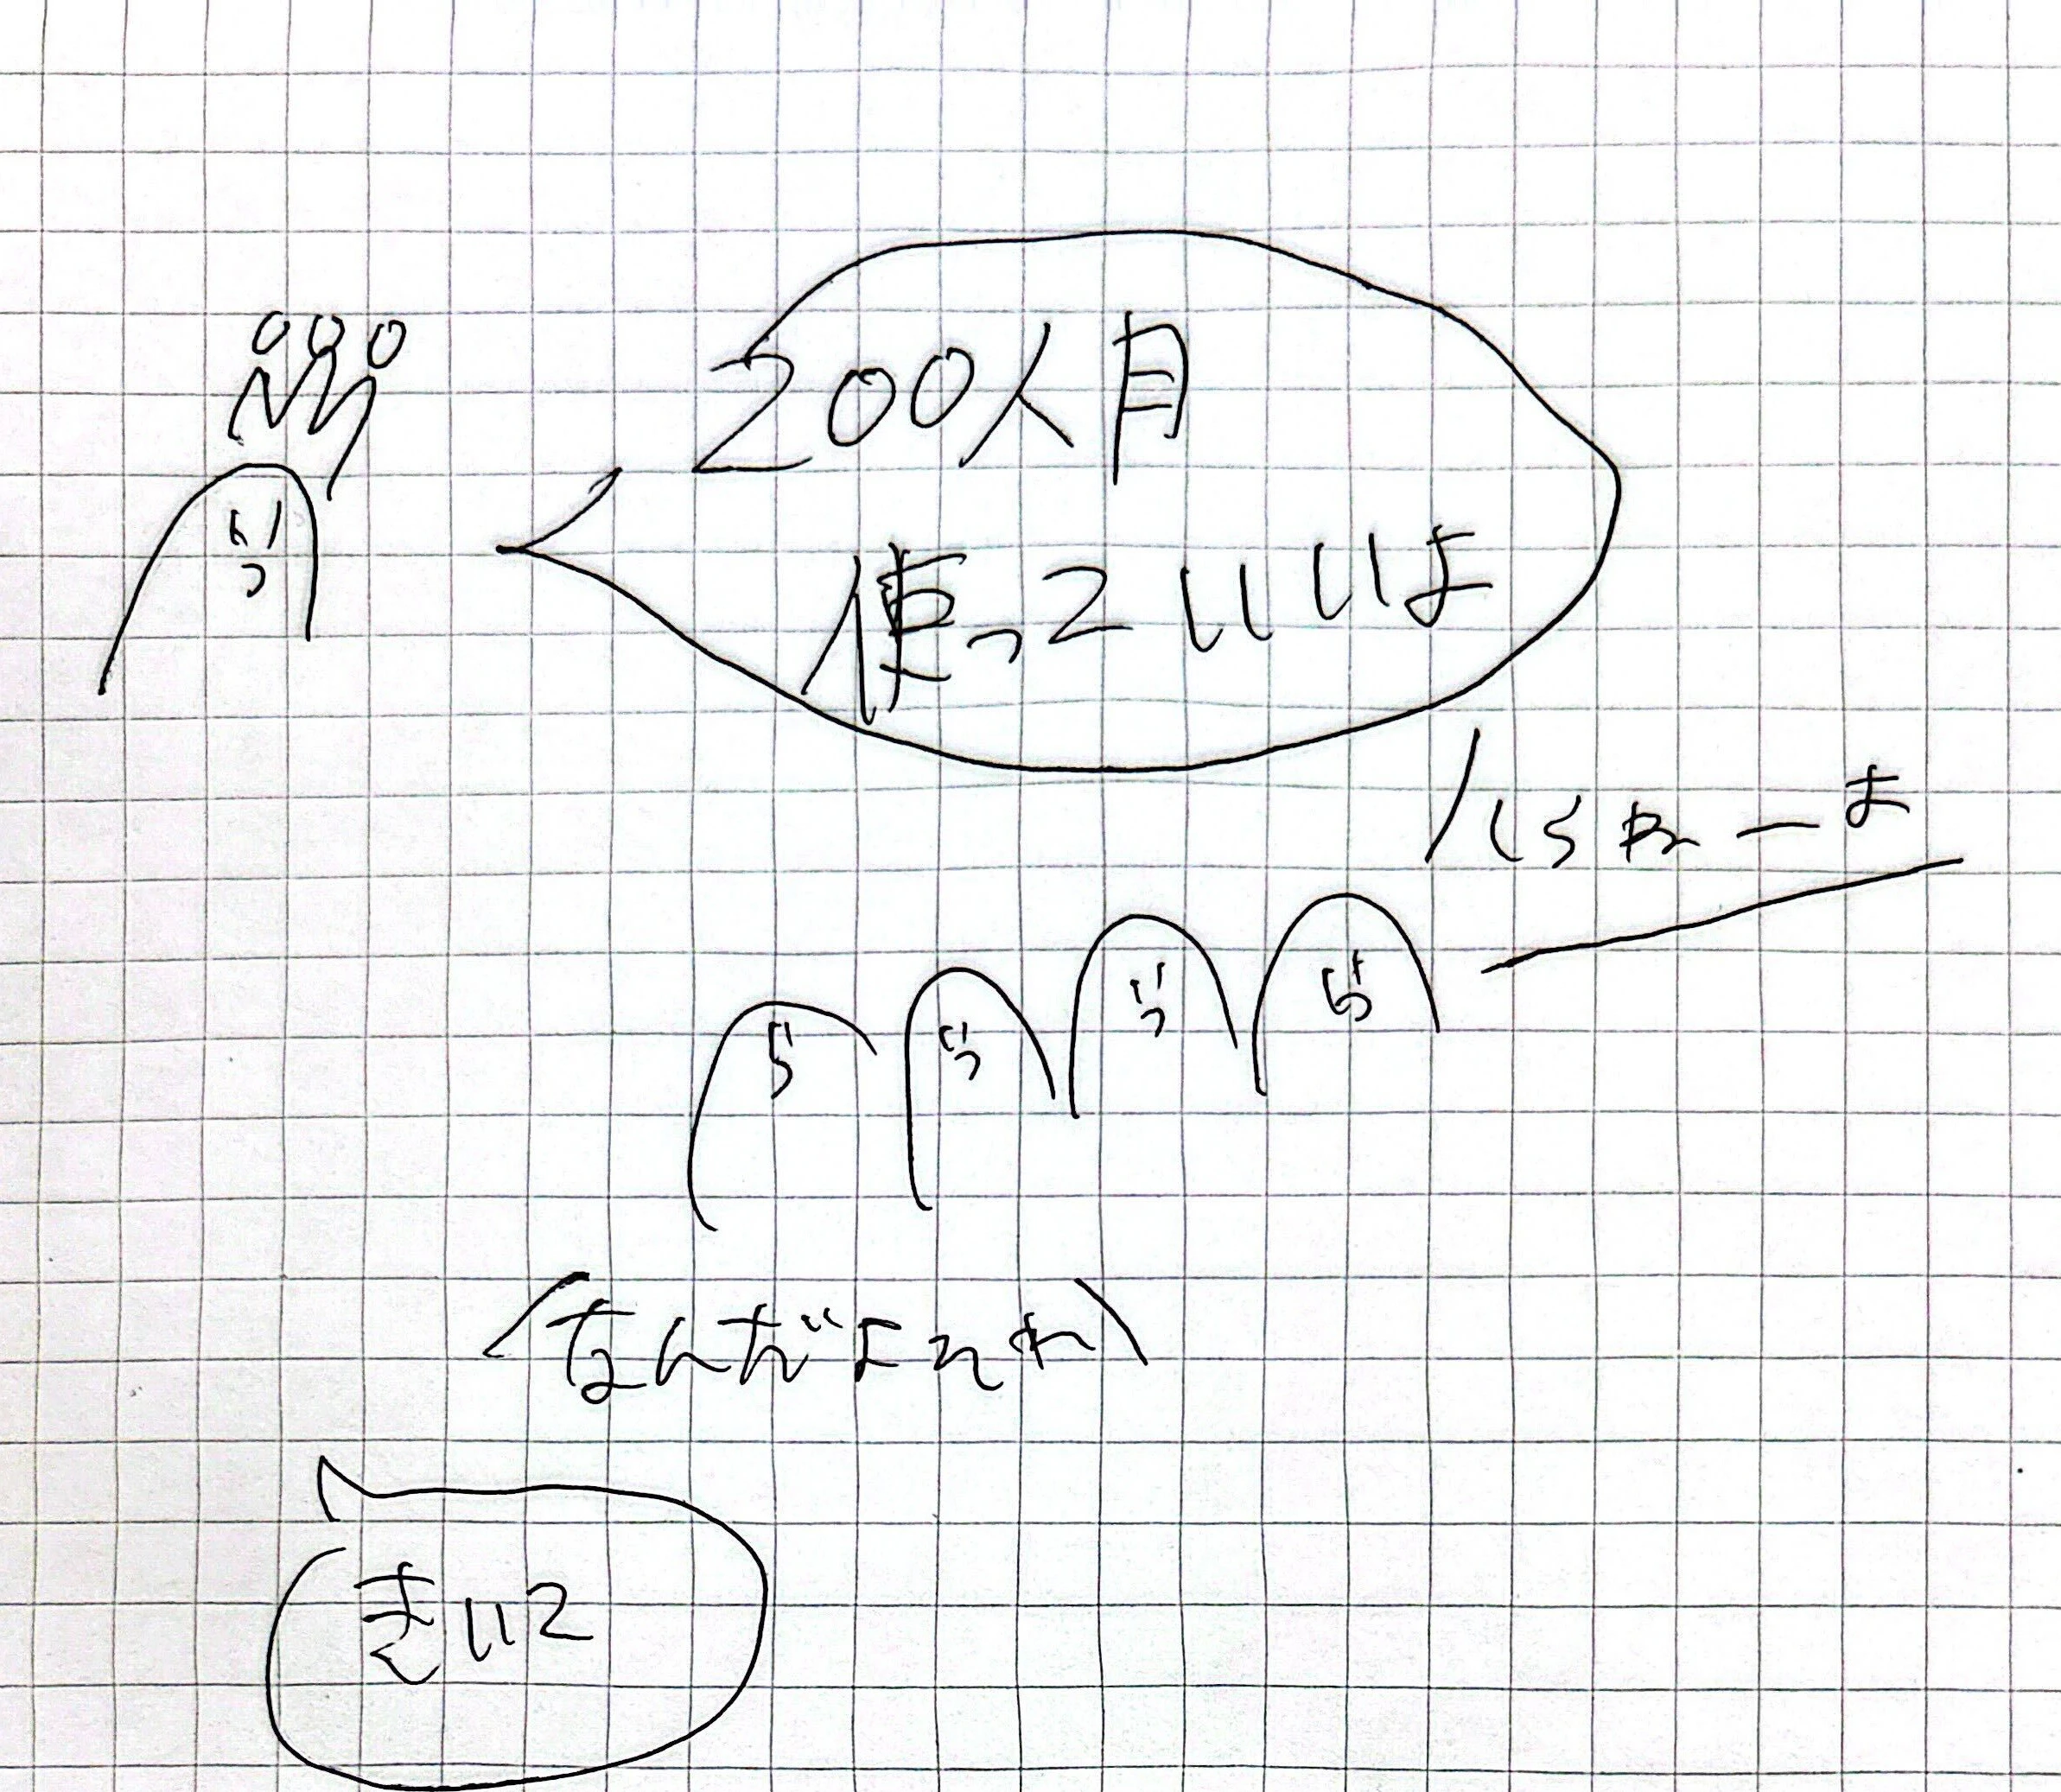 200人月
使っていいよ
いらねーよ
なんだよそれ
きいて